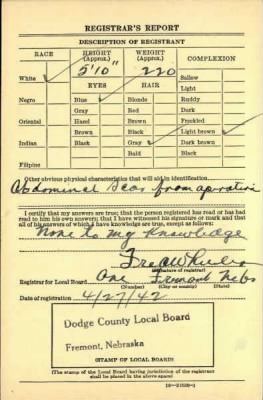 REGISTRAR'S REPORT
DESCRIPTION OF REGISTRANT
RACE HEIGHT (Approx.) WEIGHT (Approx.) COMPLEXION
White ✓ 5'10" 220 Sallow
EYES HAIR Light
Negro Blue ✓ Blonde Ruddy
Gray Red Dark
Oriental Hazel Brown Freckled
Brown Black Light brown ✓
Indian Black Gray ✓ Dark brown
Bald Black
Filipino
Other obvious physical characteristics that will aid in identification
Abdominal Scar from operation
I certify that my answers are true; that the person registered has read or has had read to him his own answers; that I have witnessed his signature or mark and that all of his answers of which I have knowledge are true, except as follows:
None to my knowledge
Fred W
(Signature of registrar)
Registrar for Local Board One Fremont Nebr
(Number) (City or county) (State)
Date of registration 4/27/42
Dodge County Local Board
Fremont, Nebraska
(STAMP OF LOCAL BOARD)
(The stamp of the Local Board having jurisdiction of the registrant
shall be placed in the above space)